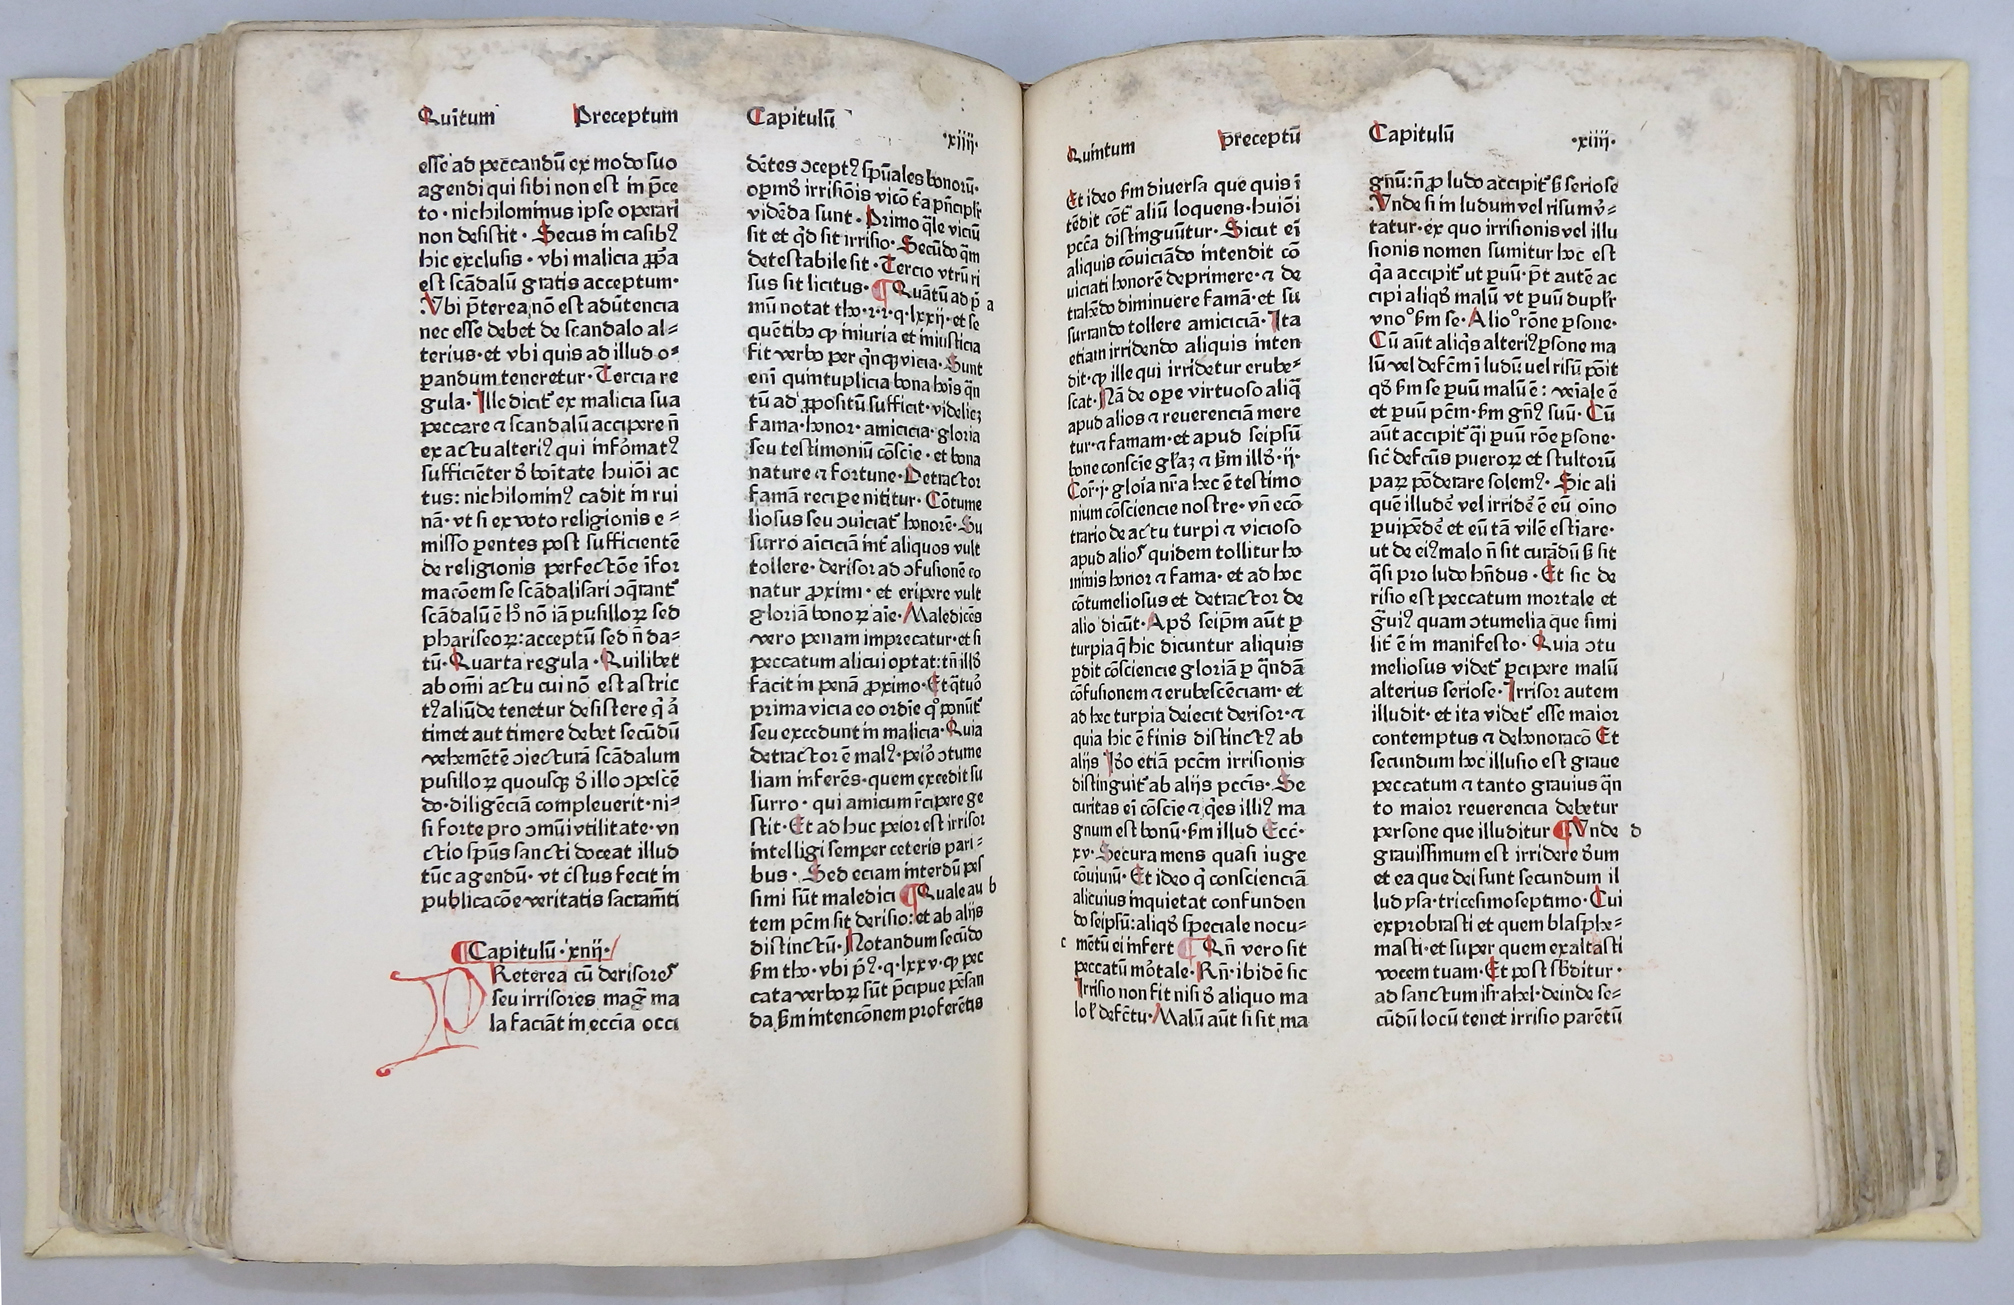 Quītum Preceptum Capitulū
·xiiij·
esse ad peccandū ex modo suo
agendi qui sibi non est in p̄ce
to · nichilominus ipse operari
non desistit · Secus in casibꝰ
hic exclusis · vbi malicia ꝓpa
est scādalū gratis acceptum·
Vbi p̄terea nō est adūtencia
nec esse debet de scandalo al⸗
terius· et vbi quis ad illud o⸗
pandum teneretur· Tercia re
gula· Ille dicit̄ ex malicia sua
peccare ⁊ scandalū accipere n̄
ex actu alteriꝰ qui infōmatꝰ
sufficiēter de bōitate huiōi ac
tus: nichilominꝰ cadit in rui
nā· vt si ex voto religionis e⸗
misso pentes post sufficientē
de religionis perfectōe īfor
macōem se scādalisari ↄq̄rant̄
scādalū ē hꝰ nō iā pusilloꝝ sed
phariseoꝝ: acceptū sed n̄ da⸗
tū· Quarta regula · Quilibet
ab om̄i actu cui nō est astric
tꝰ aliūde tenetur desistere q̄ ā
timet aut timere debet secūdū
vehemētē ↄiecturā scādalum
pusilloꝝ quousqꝫ de illo ↄpescē
do· diligēciā compleuerit· ni⸗
si forte pro ↄmūi vtilitate· vn
ctio spūs sancti doceat illud
tūc agendū· vt c̄stus fecit in
publicacōe veritatis sacramti
¶Capitulū· xiiij·
PReterea cū derisores
seu irrisores maḡ ma
la faciāt in eccīa occi
dētes ↄceptꝰ spūales bonorū·
opmō irrisiōis vicō t̄a pn̄cipl'r
vidēda sunt· Primo q̄le viciū
sit et q̄d sit irrisio· Secūdo q̄m
detestabile sit · Tercio vtrū ri
sus sit licitus· ¶Quātū ad p̄ a
mū notat tho· 2· 2· q· lxxij· et se
quētibꝰ ꝙ iniuria et iniusticia
fit verbo per q̄nqꝫ vicia· Sunt
eni quintuplicia bona hois q̄n
tū ad ꝓpositū sufficit· videlicꝫ
fama· honor· amicicia· gloria
seu testimoniū cōscie· et bona
nature ⁊ fortune· Detractor
famā recipe nititur· Cōtume
liosus seu ↄuiciat̄ honorē· Su
surro aīciciā int̄ aliquos vult
tollere· derisor ad ↄfusionē co
natur ꝓximi· et eripere vult
gloriā bonoꝝ aīe· Maledicēs
vero penam imprecatur· et si
peccatum alicui optat: tn̄ illd̄
facit in penā ꝓximo· Et q̄tuō
prima vicia eo ordīe qͦ ponūt̄
seu excedunt in malicia· Quia
detractor ē malꝰ· peiō ↄtume
liam inferēs· quem excedit su
surro· qui amicum r̄cipere ge
stit· Et ad huc peior est irrisor
intelligi semper ceteris pari⸗
bus· Sed eciam interdū pes
simi sūt maledici ¶Quale au b
tem pcm̄ sit derisio: et ab alijs
distinctū· Notandum secūdo
s̄m tho· vbi p̄ꝰ· q· lxxv· ꝙ pec
cata verboꝝ sūt p̄cipue pēsan
da s̄m intencōnem proferētis
Quintum preceptū Capitulū ·xiiij·
Et ideo s̄m diuersa que quis ī
tēdit cōt̄ aliū loquens· huiōi
pcc̄a distinguūtur· Sicut eī
aliquis cōuiciādo intendit cō
uiciati honorē deprimere· ⁊ de
trahēdo diminuere famā· et su
surrando tollere amiciciā· Ita
etiam irridendo aliquis inten
dit· ꝙ ille qui irridetur erube⸗
scat· Nā de ope virtuoso aliq̄
apud alios ⁊ reuerenciā mere
tur· ⁊ famam· et apud seipsū
bone conscīe gl'aꝫ ⁊ s̄m illd̄· ij·
Cor̄· j· gloīa nr̄a hec ē testimo
nium cōsciencie nostre· vn̄ ecō
trario de actu turpi ⁊ vicioso
apud alios quidem tollitur ho
minis honor ⁊ fama· et ad hoc
cōtumeliosus et detractor de
alio dicūt· Apd̄ seip̄m aūt ꝑ
turpia q̄ hic dicuntur aliquis
ꝑdit cōsciencie gloriā ꝑ q̄ndā
cōfusionem ⁊ erubescēciam· et
ad hec turpia deiecit derisor· ⁊
quia hic ē finis distinctꝰ ab
alijs Iō etiā pccm̄ irrisionis
distinguit̄ ab alijs pcc̄is· Se
curitas eī cōscie ⁊ q̄es illiꝰ ma
gnum est bonū· s̄m illud Ecc̄·
xv· Secura mens quasi iuge
cōuiuiū· Et ideo q̄ conscienciā
alicuius inquietat confunden
do seipsū: aliqd̄ speciale nocu⸗
c mētū ei infert ¶Qn̄ vero sit
peccatū mōtale· Rn̄· ibidē sic
Irrisio non fit nisi de aliquo ma
lo l' defc̄tu· Malū aūt si sit ma
gnū: n̄ ꝓ ludo accipit̄ s̄ seriose
Vnde si in ludum vel risum v̄⸗
tatur· ex quo irrisionis vel illu
sionis nomen sumitur hoc est
q̄a accipit̄ ut puū· p̄t autē ac
cipi aliqd̄ malū vt puū dupl'r
vnoͦ s̄m se· Alioͦ rōne ꝑsone·
Cū aūt aliq̄s alteriꝰ ꝑsone ma
lū vel defc̄m ī ludū uel risū pōit
qd̄ s̄m se puū malū ē: veīale ē
et puū pcm̄· s̄m gn̄ꝰ suū· Cū
aūt accipit̄ q̄i puū rōe ꝑsone·
sic̄ defc̄us pueroꝝ et stultorū
paꝝ pōderare solemꝰ· Sic ali
quē illudē vel irridē ē eū oīno
ꝑuipēdē et eū tā vilē estiare·
ut de eiꝰ malo n̄ sit curādū s̄ sit
q̄si pro ludo hn̄dus· Et sic de
risio est peccatum mortale et
ḡuiꝰ quam ↄtumelia que simi
lit̄ ē in manifesto· Quia ↄtu
meliosus videt̄ ꝑcipere malū
alterius seriose· Irrisor autem
illudit· et ita videt̄ esse maior
contemptus ⁊ dehonoracō Et
secundum hoc illusio est graue
peccatum ⁊ tanto grauius q̄n
to maior reuerencia debetur
persone que illuditur ¶Vnde d
grauissimum est irridere deum
et ea que dei sunt secundum il
lud ysa· tricesimoseptimo· Cui
exprobrasti et quem blasphe⸗
masti· et super quem exaltasti
vocem tuam· Et post sb̄ditur·
ad sanctum israhel· deinde se⸗
cūdū locū tenet irrisio parētū